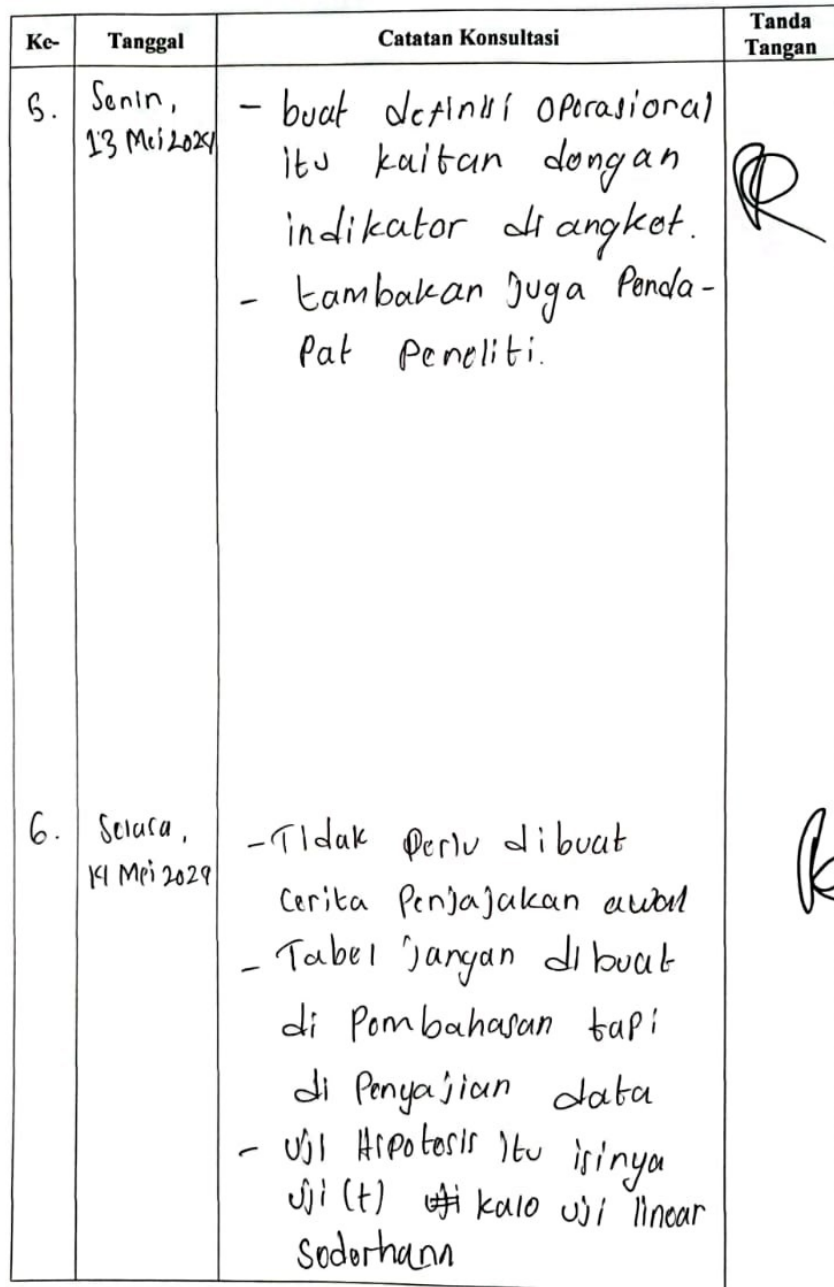 Ke- Tanggal Catatan Konsultasi Tanda Tangan
5. Senin, 13 Mei 2024
- buat definisi operasional
itu kaitan dengan
indikator di angket.
- tambakan juga Penda-
Pat Peneliti.
6. Selasa, 14 Mei 2024
- Tidak Perlu dibuat
Cerita Penjajakan awal
- Tabel jangan dibuat
di Pembahasan tapi
di Penyajian data
- Uji Hipotesis itu isinya
Uji (t) kalo uji linear
Sederhana